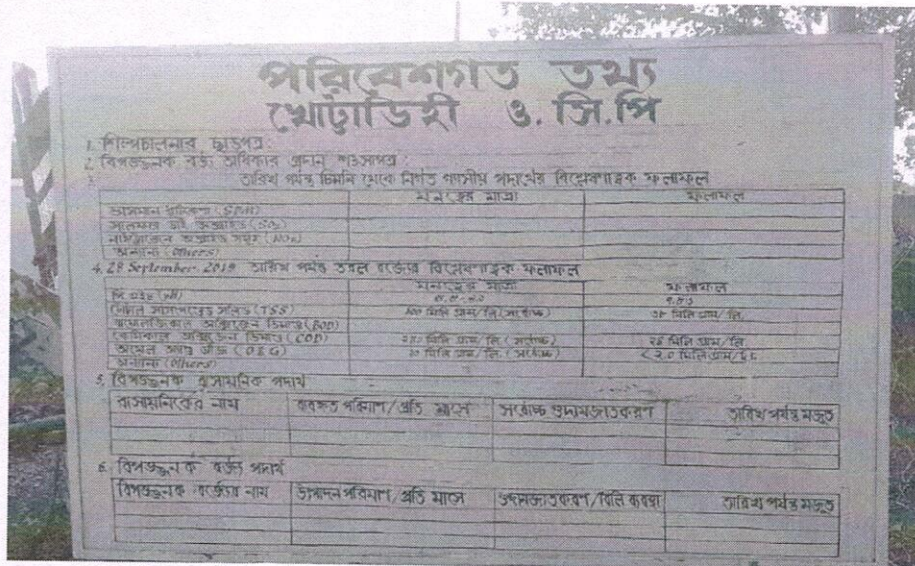 পরিবেশগত তথ্য
খোট্টাডিহী ও. সি. পি
1. শিল্পচালনার ছাড়পত্র :
2. বিপজ্জনক বর্জ্য অধিকার প্রদান শংসাপত্র :
তারিখ পর্যন্ত চিমনি থেকে নির্গত গ্যাসীয় পদার্থের বিশ্লেষণাত্মক ফলাফল
মনত্বের মাত্রা ফলাফল
(SPM)
সালফার ডাই অক্সাইড (SO₂)
নাইট্রোজেন অক্সাইড সমূহ (NOx)
অন্যান্য (Others)
4. 28 September. 2019 তারিখ পর্যন্ত তরল বর্জ্যের বিশ্লেষণাত্মক ফলাফল
মনত্বের মাত্রা ফলাফল
পি এইচ (pH)
(TSS) ১০০ মিলি গ্রাম/লি. (সর্বোচ্চ) মিলি গ্রাম/লি.
বায়োলজিকাল অক্সিজেন ডিমান্ড (BOD)
কেমিকাল অক্সিজেন ডিমান্ড (COD) ২৫০ মিলি গ্রাম/লি. (সর্বোচ্চ) মিলি গ্রাম/লি.
অয়েল অ্যান্ড গ্রীজ (O&G) ১০ মিলি গ্রাম/লি. (সর্বোচ্চ) <২.০ মিলিগ্রাম/লি.
অন্যান্য (Others)
5. বিপজ্জনক রাসায়নিক পদার্থ
রাসায়নিকের নাম ব্যবহৃত পরিমাণ/প্রতি মাসে সর্বোচ্চ গুদামজাতকরণ তারিখ পর্যন্ত মজুত
6. বিপজ্জনক বর্জ্য পদার্থ
বিপজ্জনক বর্জ্যের নাম উৎপাদন পরিমাণ/প্রতি মাসে গুদামজাতকরণ/বিলি ব্যবস্থা তারিখ পর্যন্ত মজুত